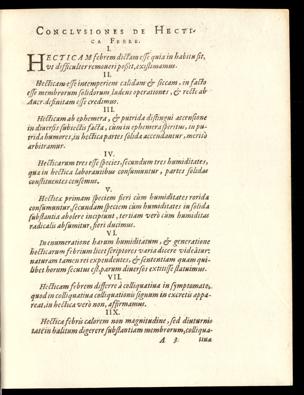 CONCLVSIONES DE HECTI-
CA FEBRE.
I.
HECTICAM febrem dictam esse quia in habitu sit,
vt difficulter remoueri possit, existimamus.
II.
Hecticam esse intemperiem calidam & siccam, in facto
esse membrorum solidorum ludens operationes, & recte ab
Auer. definitam esse credimus.
III.
Hecticam ab ephemera, & putrida distingui accensione
in diuersis subiectis facta, cum in ephemera spiritus, in pu-
trida humores, in hectica partes solidæ accendantur, meritò
arbitramur.
IV.
Hecticarum tres esse species, secundum tres humiditates,
quæ in hectica laborantibus consumuntur, partes solidas
constituentes censemus.
V.
Hecticæ primam speciem fieri cùm humiditates rorida
consumuntur, secundam speciem cùm humiditates in solida
substantia abolere incipiunt, tertiam verò cùm humiditas
radicalis absumitur, fieri ducimus.
VI.
In enumeratione harum humiditatum, & generatione
hecticarum febrium licet scriptores varia dicere videãtur,
naturam tamen rei expendentes, & sententiam quam qui-
libet horum secutus est, parum diuersos extitisse statuimus.
VII.
Hecticam febrem differre à colliquatiua in symptomate,
quod in colliquatiua colliquationis signum in excretis appa-
reat, in hectica verò non, affirmamus.
IIX.
Hectica febris calorem non magnitudine, sed diuturni-
tate in halitum digerere substantiam membrorum, colliqua-
A 3 tiua